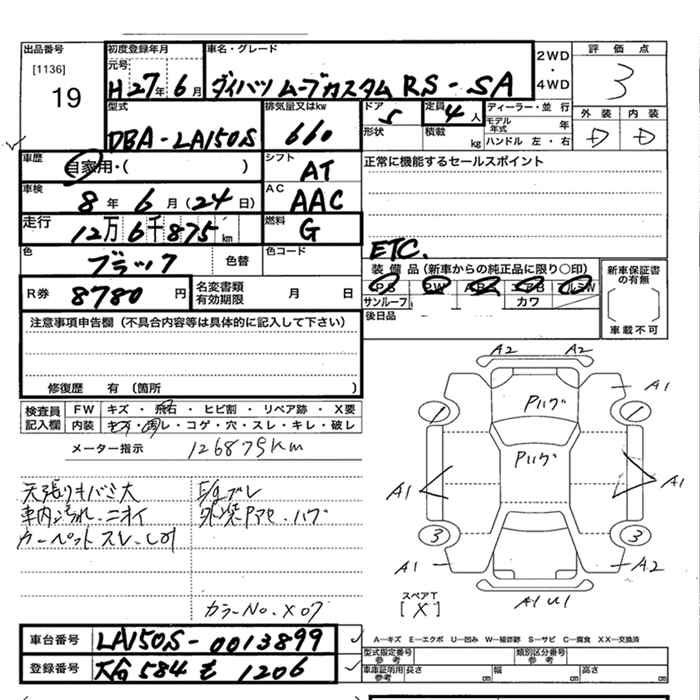 出品番号 初度登録年月 車名・グレード 2WD・4WD 評価点
[1136] 元号
19 H27年6月 ダイハツ ムーブカスタム RS-SA 3
型式 排気量又はkw ドア 定員 ディーラー・並行 外装 内装
DBA-LA150S 660 5 4人 モデル年式 年 D D
形状 積載 kg ハンドル 左・右
車歴 自家用・( ) シフト AT 正常に機能するセールスポイント
車検 8年6月(24日) AC AAC
走行 12万6千875km 燃料 G
ETC.
色 ブラック 色替 色コード 装備品(新車からの純正品に限り○印) 新車保証書の有無
PS PW ABS エアB アルミW
R券 8780円 名変書類有効期限 月 日 サンルーフ カワ
後日品 車載不可
注意事項申告欄(不具合内容等は具体的に記入して下さい)
修復歴 有(箇所 )
検査員記入欄 FW キズ・飛石・ヒビ割・リペア跡・X要
内装 キズ・汚レ・コゲ・穴・スレ・キレ・破レ
メーター指示 126875km
天張りキバミ大 E/gブレ
車内汚れ.ニオイ 外装Pアセ.ハゲ
カーペットスレ.シミ
カラーNo.X07
A2 A2
A1
Pハゲ
1 1
Pハゲ
A1 A1
3 3
A1 A2
A1U1
スペアT
[X]
A―キズ E―エクボ U―凹み W―補修跡 S―サビ C―腐食 XX―交換済
車台番号 LA150S-0013899
型式指定番号 参考 類別区分番号 参考
登録番号 584 も 1206
車庫証明用 参考 長さ cm 幅 cm 高さ cm